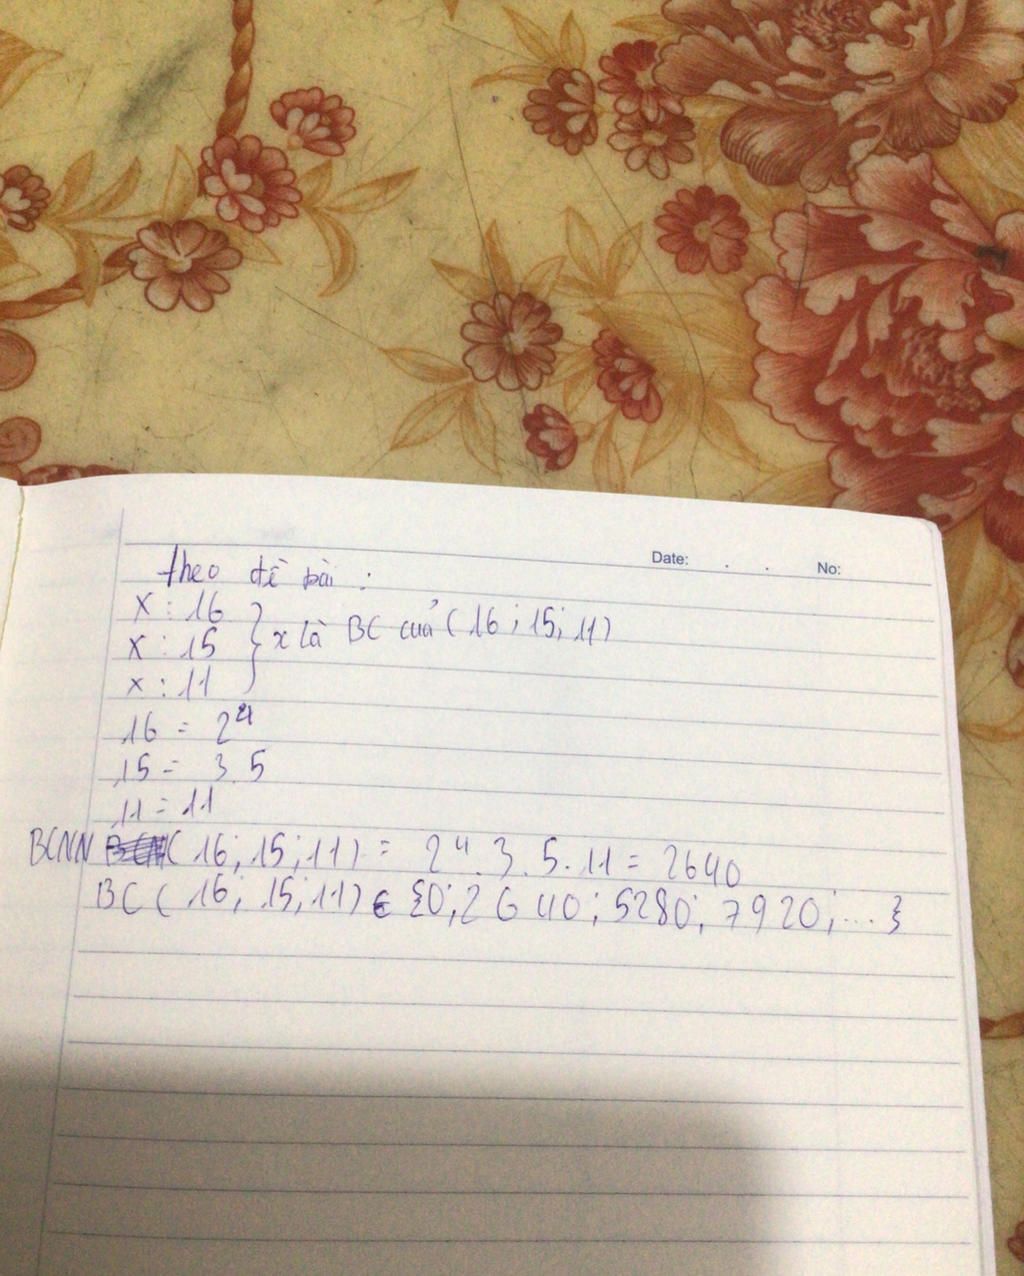 Date: . . No:
Theo đề bài :
x : 16
x : 15 } x là BC của ( 16 ; 15 ; 11 )
x : 11
16 = 2⁴
15 = 3.5
11 = 11
BCNN ( 16 ; 15 ; 11 ) = 2⁴. 3. 5. 11 = 2640
BC ( 16 ; 15 ; 11 ) ∈ {0 ; 2640 ; 5280 ; 7920 ; ... }